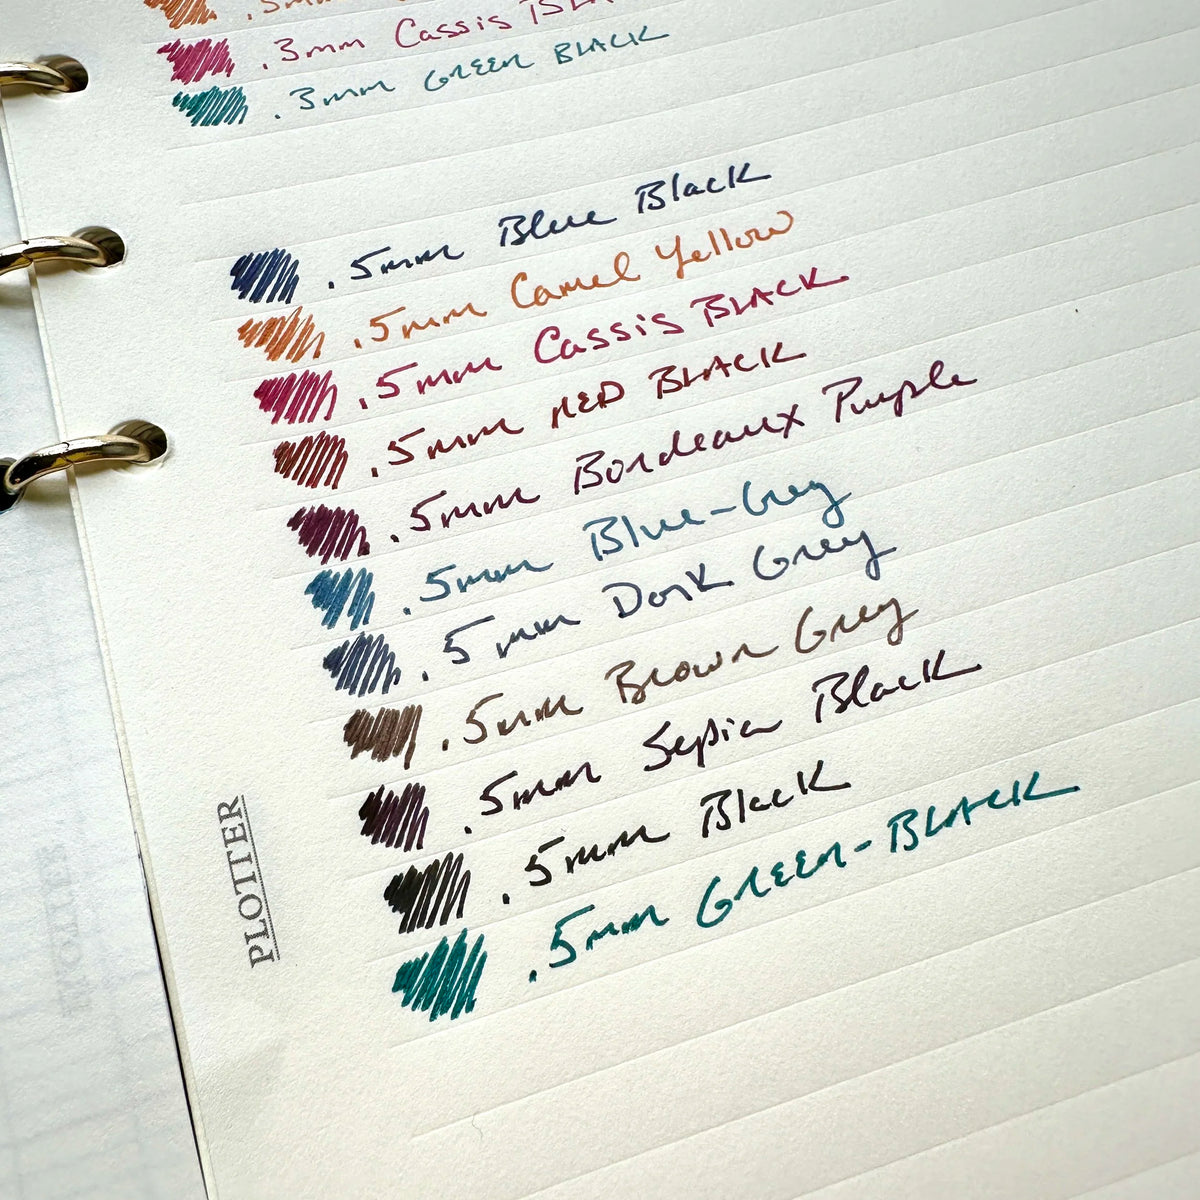 .5mm
.3mm Cassis
.3mm GREEN BLACK
.5mm Blue Black
.5mm Camel Yellow
.5mm Cassis BLACK
.5mm RED BLACK
.5mm Bordeaux Purple
.5mm Blue-Grey
.5mm Dark Grey
.5mm Brown Grey
.5mm Sepia Black
.5mm Black
.5mm GREEN-BLACK
PLOTTER